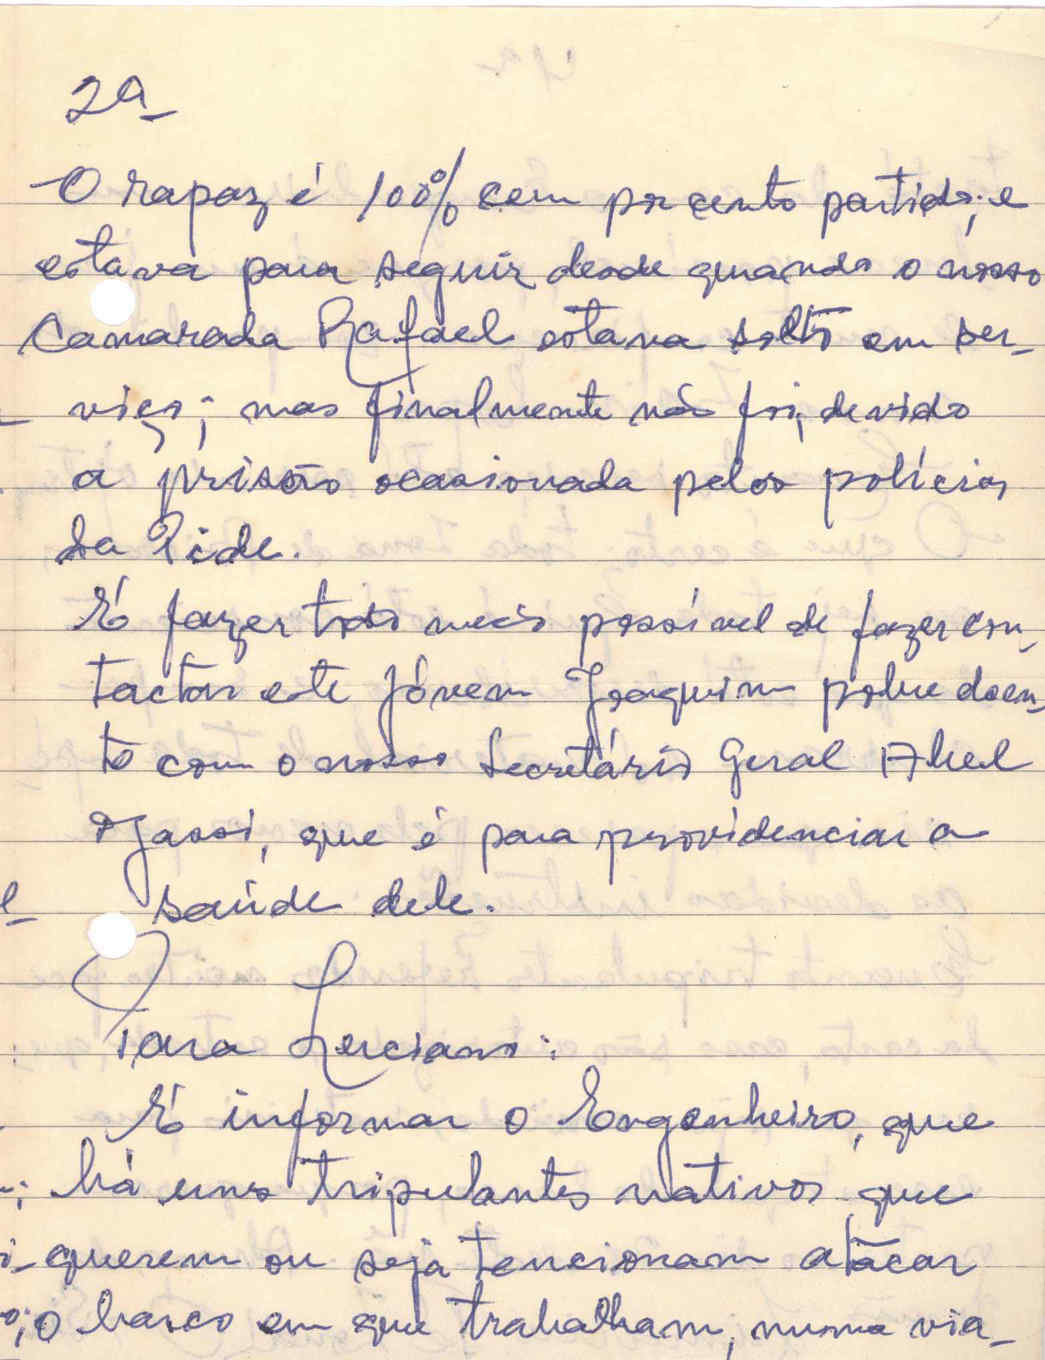 2a
O rapaz é 100% cem por cento partido; e
estava para seguir desde quando o nosso
Camarada Rafael estava solto em ser-
viço; mas finalmente não foi, devido
a prisão ocasionada pelos polícias
da Pide.
É fazer todo meio possível de fazer con-
tactar este jóvem Joaquim pobre doen-
te com o nosso Secretário Geral Abel
Djassi, que é para providenciar a
saúde dele.
Para Luciano:
É informar o Engenheiro, que
há uns tripulantes nativos que
querem ou seja tencionam atacar
o barco em que trabalham, numa via-